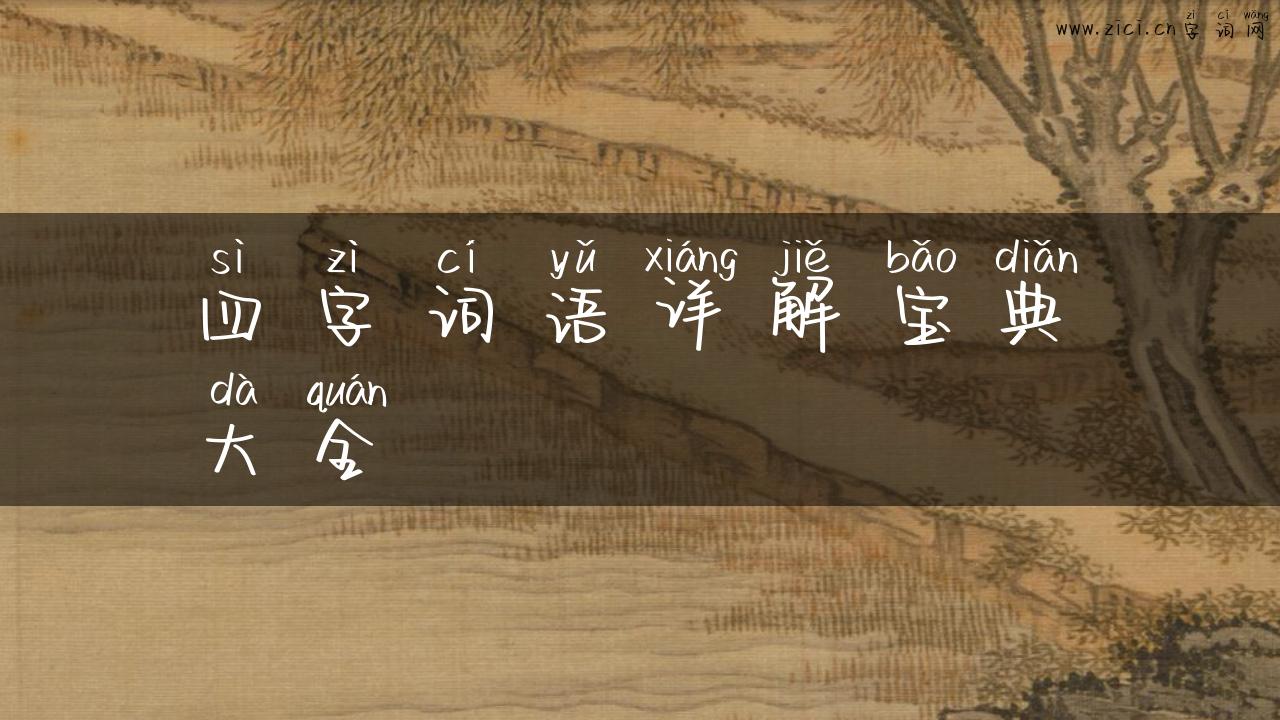 zì cí wǎng
www.zici.cn字词网
sì zì cí yǔ xiáng jiě bǎo diǎn
四字词语详解宝典
dà quán
大全